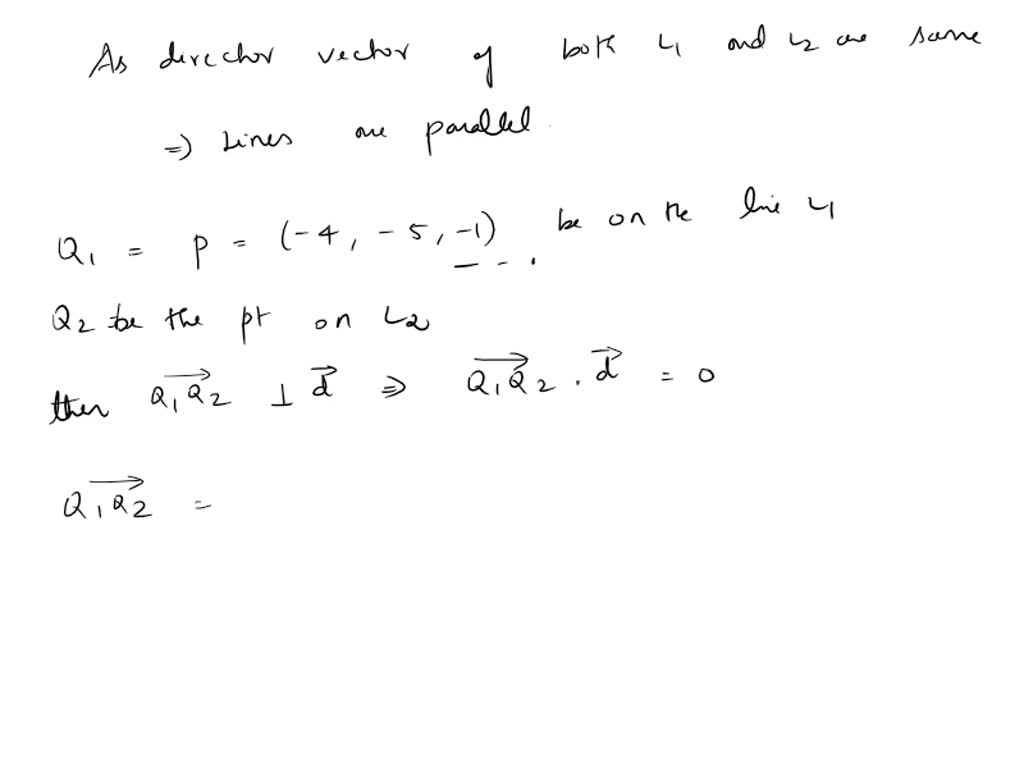 As director vector of both L1 and L2 are same
⇒ Lines are parallel.
Q1 = P = (-4, -5, -1) be on the line L1
Q2 be the pt on L2
then Q1Q2 ⊥ d ⇒ Q1Q2 . d = 0
Q1Q2 =